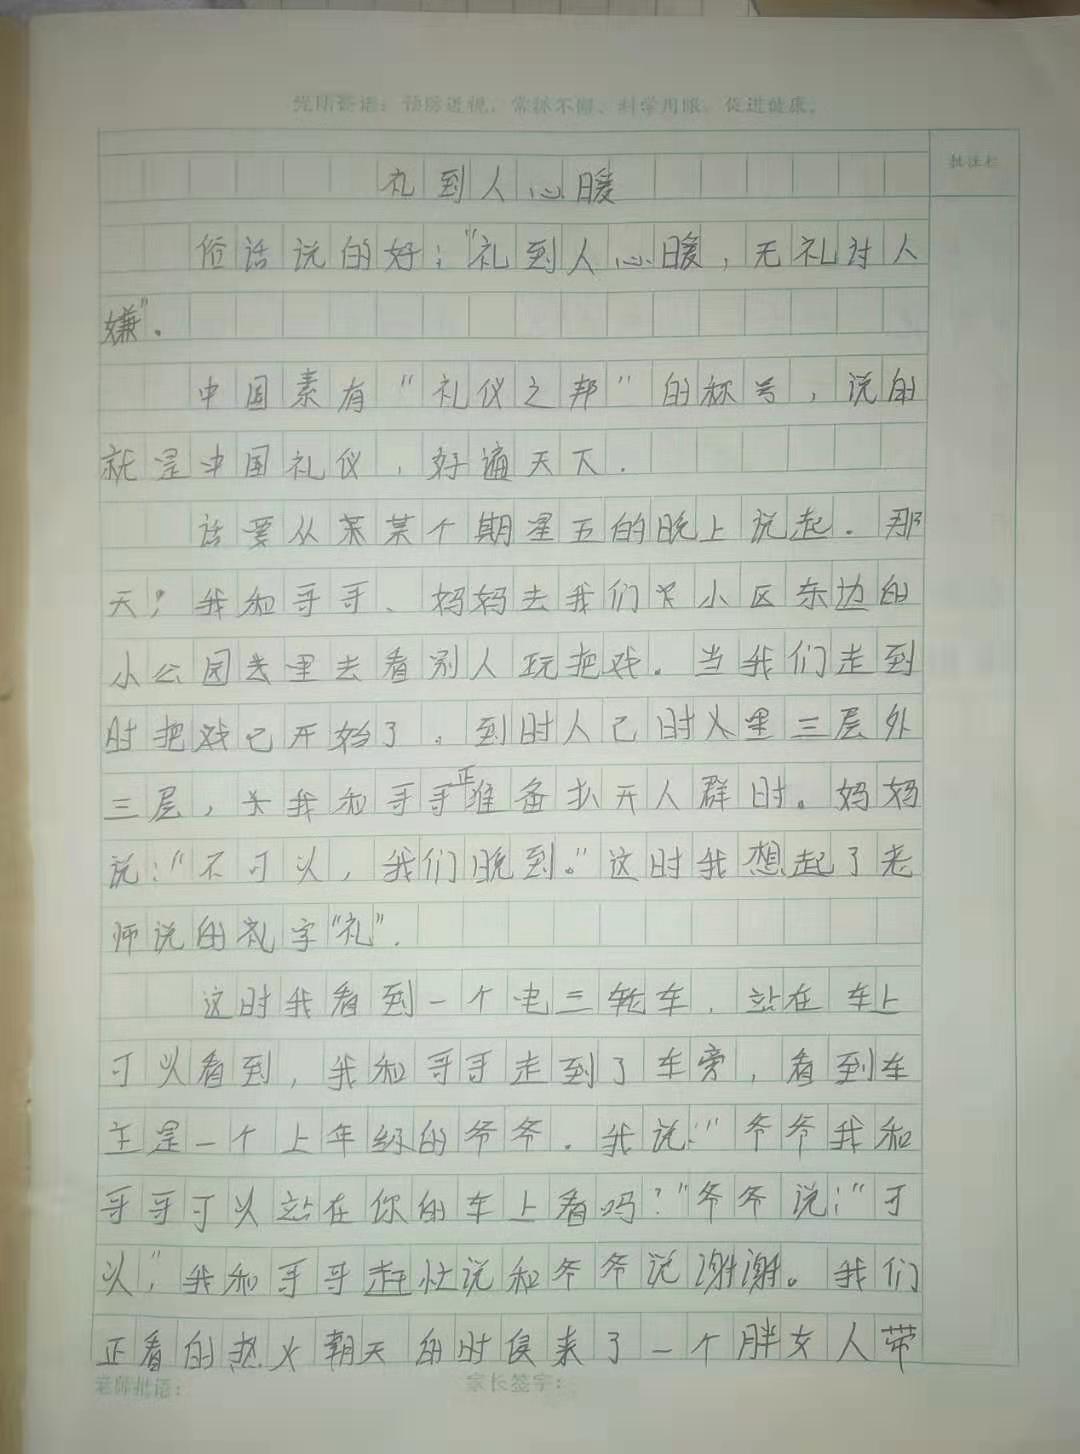 老师寄语：预防近视，常抓不懈，科学用眼，促进健康。
批注栏
礼到人心暖
俗话说的好；"礼到人心暖，无礼讨人
嫌"。
中国素有"礼仪之邦"的称号，说的
就是中国礼仪，好遍天下.
话要从某某个期星五的晚上说起.那
天，我和哥哥、妈妈去我们小区东边的
小公园里去看别人玩把戏.当我们走到
时把戏已开始了，到时人已时人里三层外
三层，我和哥哥正准备扒开人群时。妈妈
说："不可以，我们晚到。"这时我想起了老
师说的礼字"礼".
这时我看到一个电三轮车，站在车上
可以看到，我和哥哥走到了车旁，看到车
主是一个上年级的爷爷.我说："爷爷我和
哥哥可以站在你的车上看吗？"爷爷说："可
以"，我和哥哥赶忙说和爷爷说谢谢。我们
正看的热火朝天的时侯来了一个胖女人带
老师批语：
家长签字：